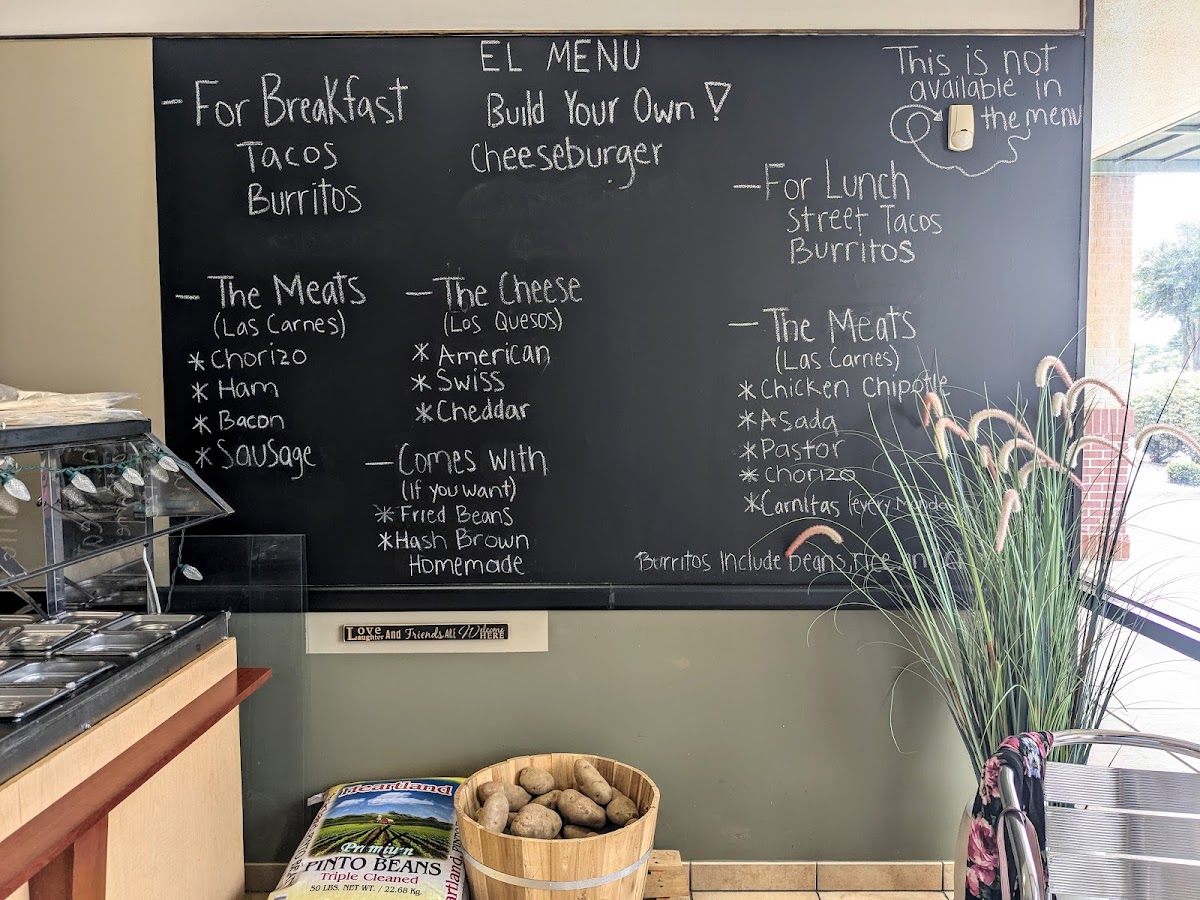 EL MENU
Build Your Own!
Cheeseburger
- For Breakfast
Tacos
Burritos
This is not
available in
the menu
- For Lunch
Street Tacos
Burritos
- The Meats
(Las Carnes)
* Chorizo
* Ham
* Bacon
* Sausage
- The Cheese
(Los Quesos)
* American
* Swiss
* Cheddar
- Comes with
(If you want)
* Fried Beans
* Hash Brown
Homemade
- The Meats
(Las Carnes)
* Chicken Chipotle
* Asada
* Pastor
* Chorizo
* Carnitas (every
Burritos Include beans, rice,
Love Laughter And Friends ALL Welcome HERE
Heartland
Premium
PINTO BEANS
Triple Cleaned
50 LBS. NET WT. / 22.68 Kg.